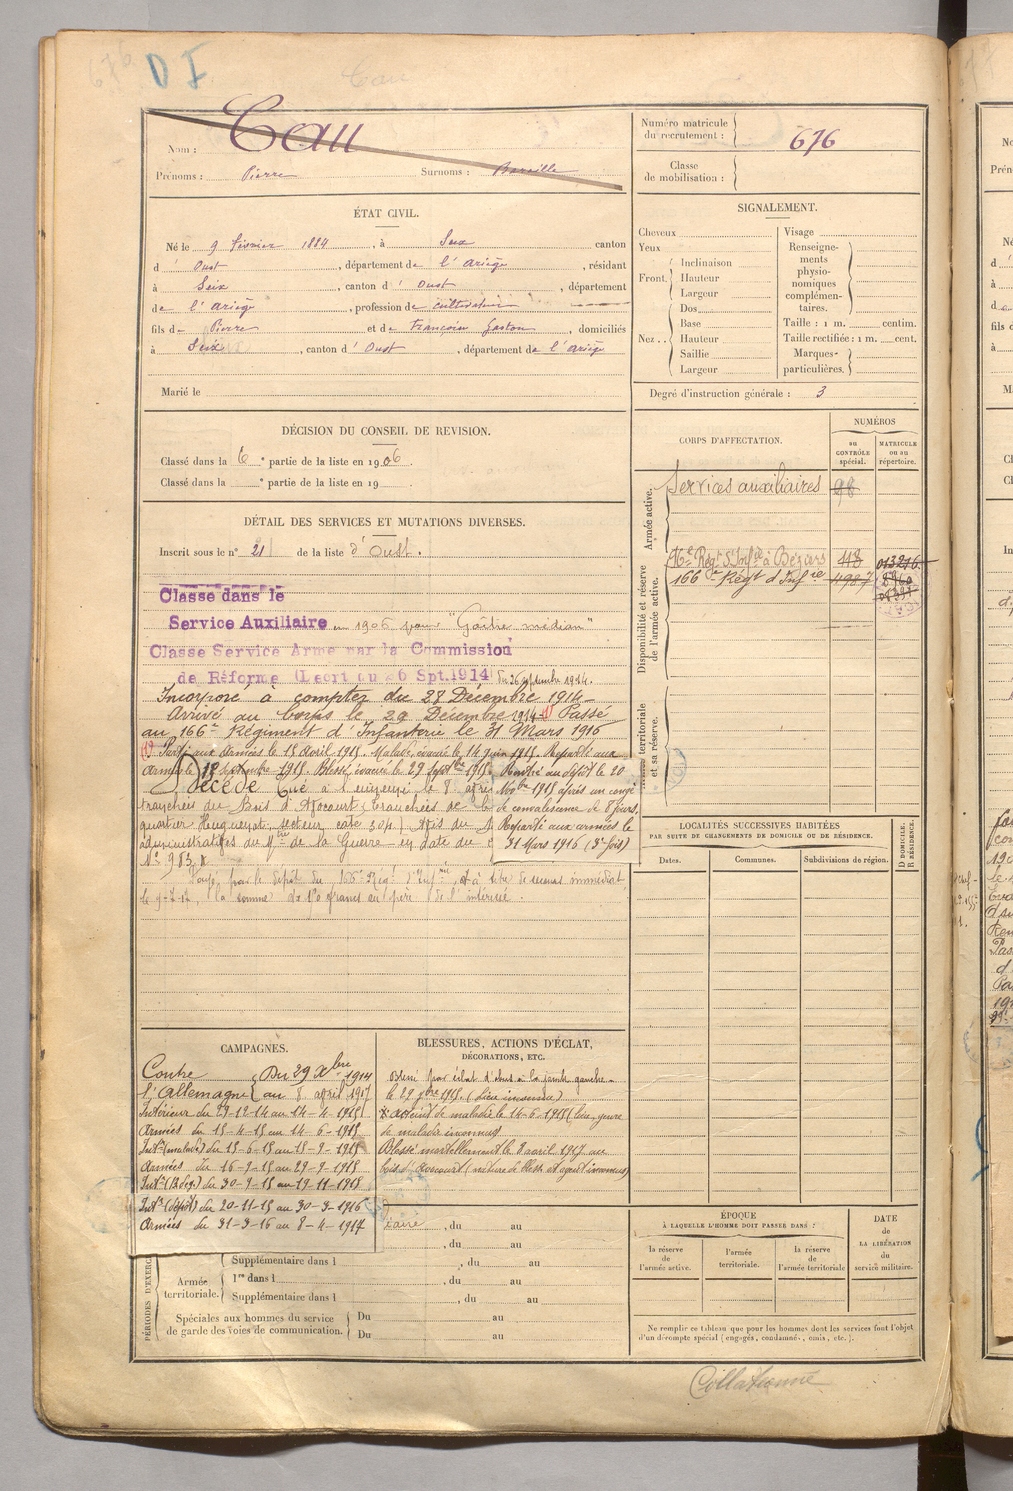 D I.
676
Cau
Nom : Cau
Prénoms : Pierre Surnoms : Baraille
Numéro matricule du recrutement : 676
Classe de mobilisation :
ÉTAT CIVIL.
Né le 9 février 1884, à Seix canton
d' Oust, département de l'ariège, résidant
à Seix, canton d' Oust, département
de l'ariège, profession de cultivateur
fils de Pierre et de françoise Gaston, domiciliés
à Seix, canton d' Oust, département de l'ariège
Marié le
SIGNALEMENT.
Cheveux
Yeux
Front. Inclinaison
Hauteur
Largeur
Nez .. Dos
Base
Hauteur
Saillie
Largeur
Visage
Renseigne-
ments
physio-
nomiques
complémen-
taires.
Taille : 1 m. centim.
Taille rectifiée : 1 m. cent.
Marques
particulières.
Degré d'instruction générale : 3
DÉCISION DU CONSEIL DE REVISION.
Classé dans la 6e partie de la liste en 1906
Classé dans la e partie de la liste en 19
DÉTAIL DES SERVICES ET MUTATIONS DIVERSES.
Inscrit sous le n° 21 de la liste d'Oust.
Classé dans le
Service Auxiliaire en 1906 pour "Goître médian"
Classé Service Armé par la Commission
de Réforme (Décrt du 26 Spt.1914) du 26 septembre 1914.
Incorporé à compter du 28 Décembre 1914
Arrivé au Corps le 29 Décembre 1914 (1) Passé
au 166e Régiment d'Infanterie le 31 Mars 1916
(1) Parti aux armées le 15 avril 1915. Malade, évacué le 14 juin 1915. Reparti aux
armées le 15 septembre 1915. Blessé, évacué le 29 septbre 1915.
Décédé Tué à l'ennemi le 8 avri
tranchées du Bois d'Avocourt (tranchées de
quartier secteur cote 304) Avis du
administratifs du Mtère de la Guerre en date du
N° 983.
Rentré au dépôt le 20
Novbre 1915 après un congé
de convalescence de 8 jours.
Reparti aux armées le
31 Mars 1916 (2e fois)
Payé par le dépôt du 166e Régt d'Infrie, et à titre de secours immédiat,
la somme de 150 francs au père de l'intéressé.
CORPS D'AFFECTATION.
NUMÉROS
au CONTRÔLE spécial.
MATRICULE ou au répertoire.
Armée active.
Services auxiliaires 98
Disponibilité et réserve de l'armée active.
96e Régt d'Infie à Béziers 118 013216
166e Régt d'Infie 4987
Armée territoriale et sa réserve.
LOCALITÉS SUCCESSIVES HABITÉES
PAR SUITE DE CHANGEMENTS DE DOMICILE OU DE RÉSIDENCE.
Dates. Communes. Subdivisions de région.
D DOMICILE. R RÉSIDENCE.
CAMPAGNES.
Contre l'Allemagne { Du 29 Xbre 1914
au 8 avril 1917
Intérieur du 29-12-14 au 14-4-1915
Armées du 15-4-15 au 14-6-1915
Intr (malade) du 15-6-15 au 15-9-1915
Armées du 16-9-15 au 29-9-1915
Intr (Bl. ) du 30-9-15 au 19-11-1915
Intr (dépôt) du 20-11-15 au 30-3-1916
Armées du 31-3-16 au 8-4-1917
BLESSURES, ACTIONS D'ÉCLAT,
DÉCORATIONS, ETC.
Blessé par éclat d'obus à la jambe gauche
le 29 7bre 1915. (Lieu inconnu)
atteint de maladie le 14-6-1915 (Lieu, genre
de maladie inconnus)
Blessé mortellement le 8 avril 1917 au
bois d'avocourt (nature de bless. et agent inconnus)
PÉRIODES D'EXERC
taire , du au
, du au
Armée
territoriale.
Supplémentaire dans l , du au
1re dans l , du au
Supplémentaire dans l , du au
Spéciales aux hommes du service
de garde des voies de communication. Du au
Du au
ÉPOQUE
À LAQUELLE L'HOMME DOIT PASSER DANS :
la réserve de l'armée active.
l'armée territoriale.
la réserve de l'armée territoriale
DATE de LA LIBÉRATION du service militaire.
Ne remplir ce tableau que pour les hommes dont les services font l'objet
d'un décompte spécial (engagés, condamnés, omis, etc.).
Collationné